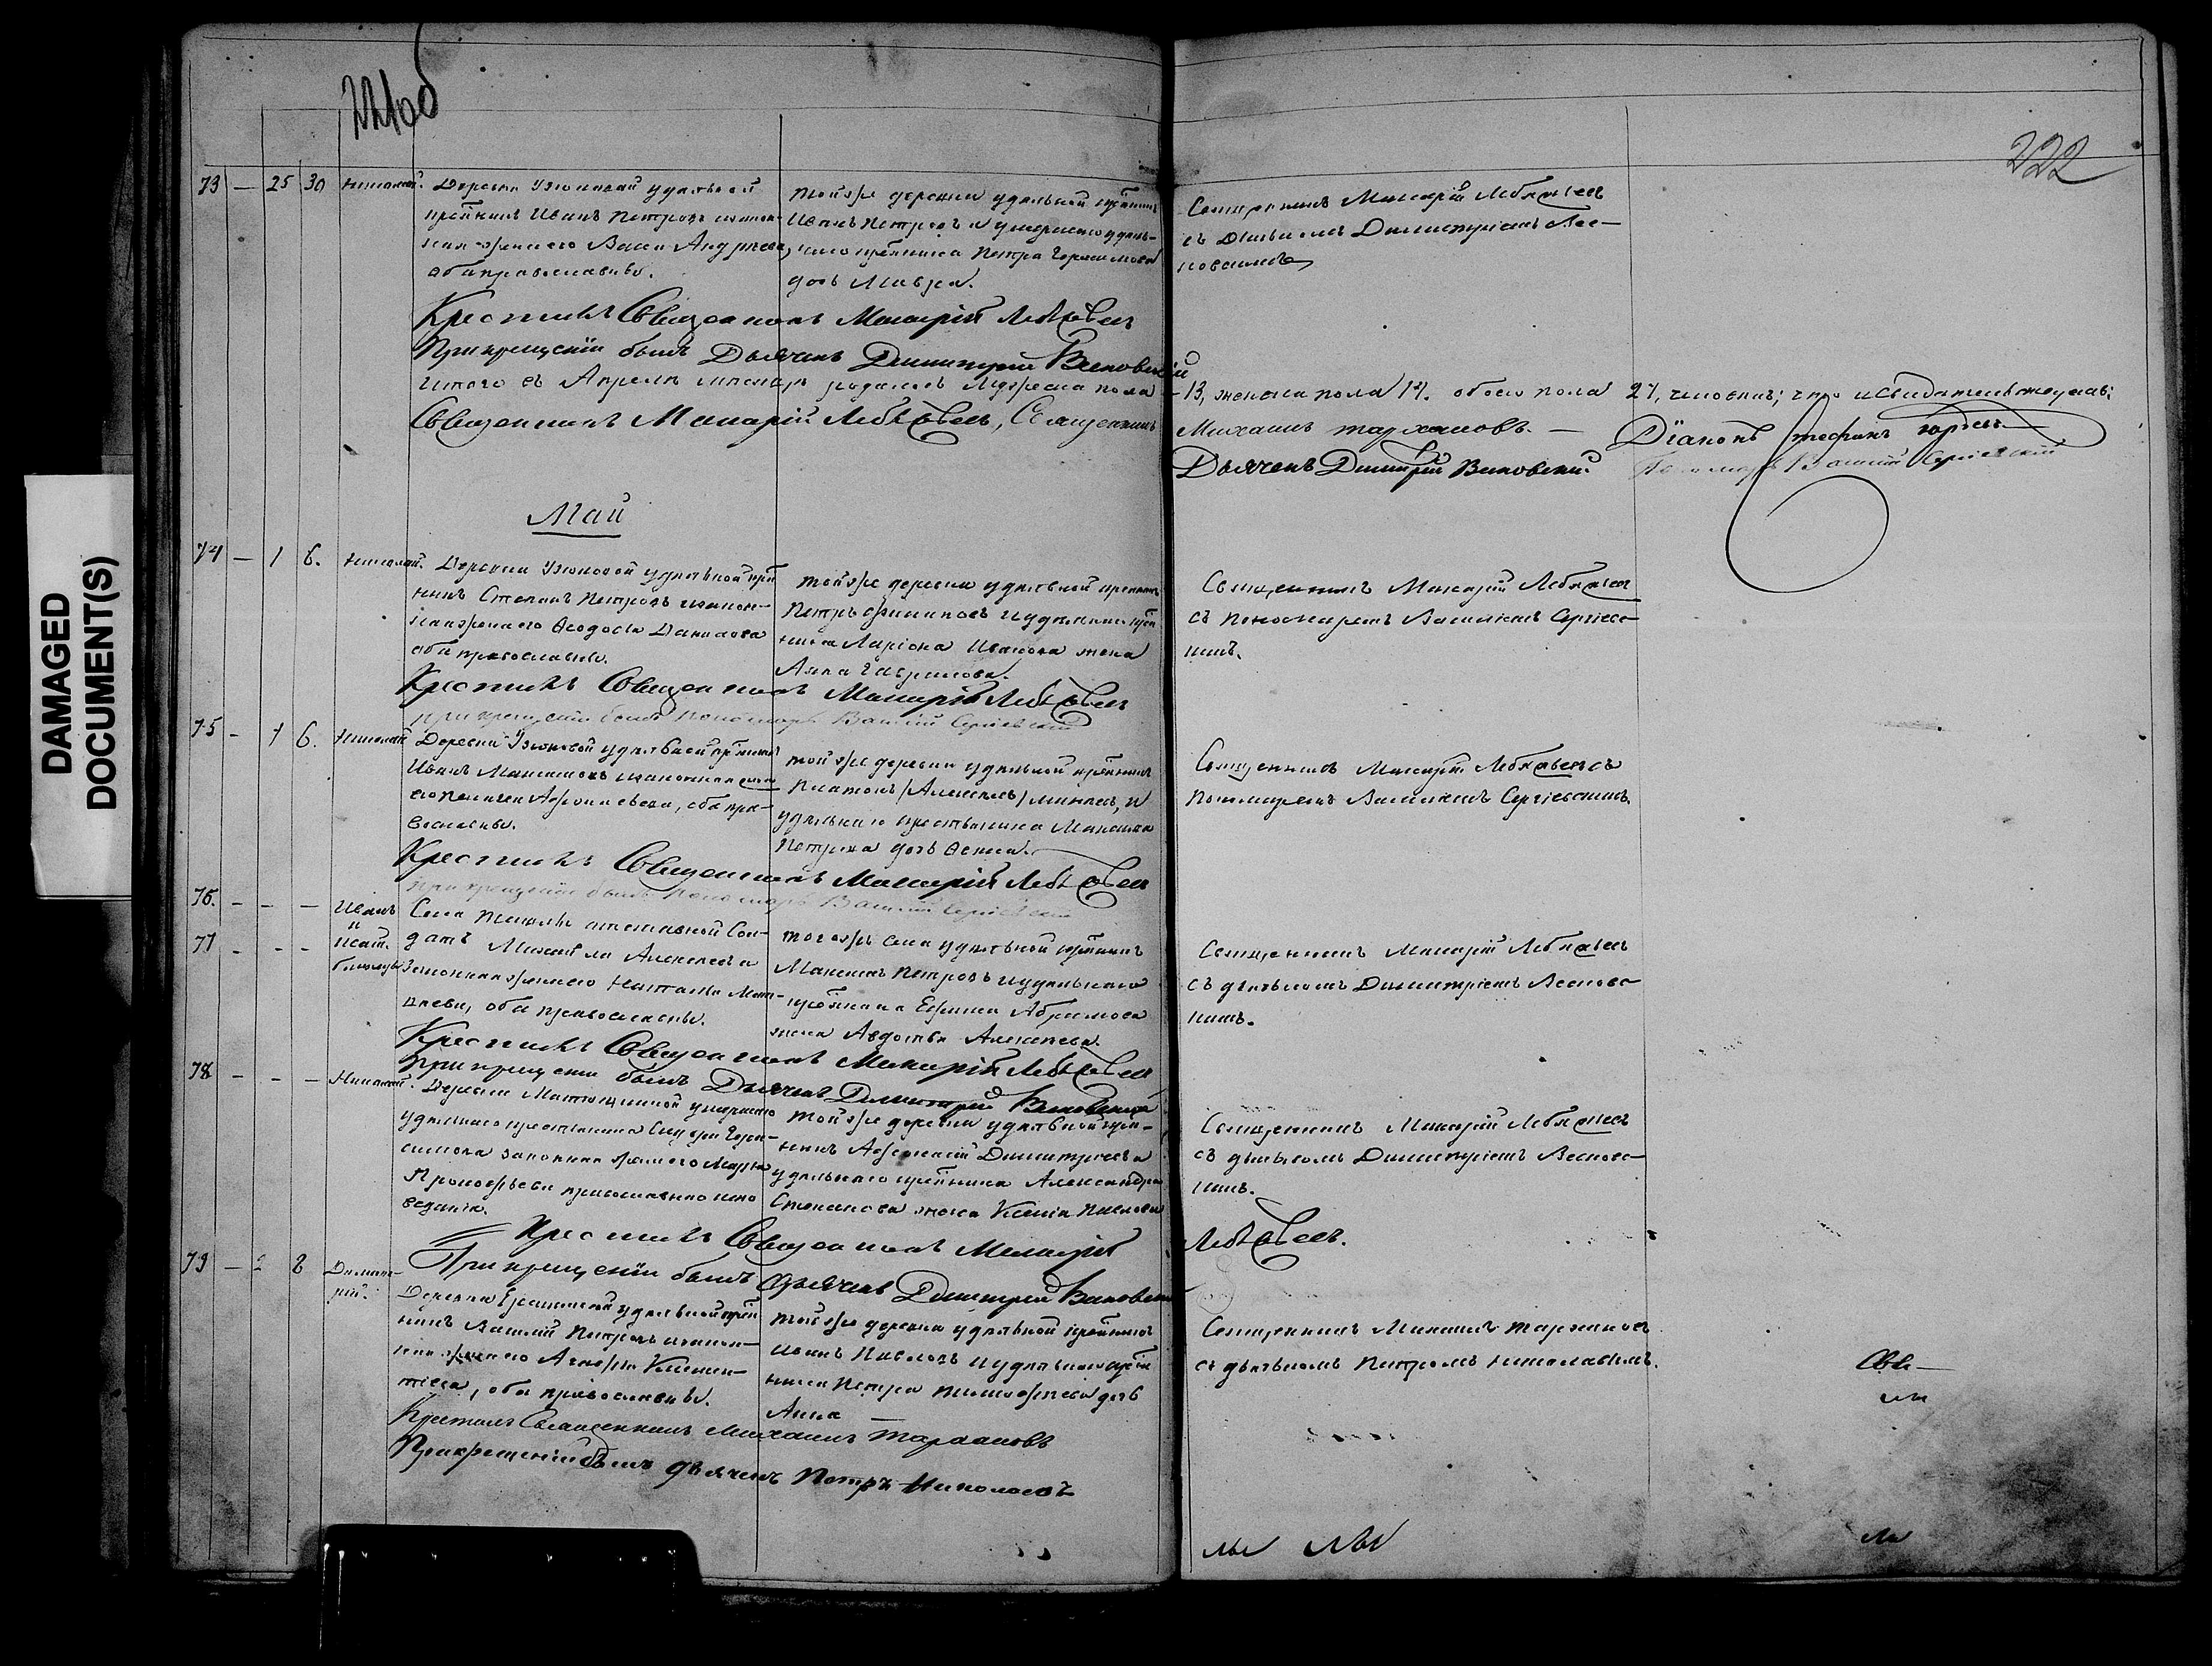 221 об
222
DAMAGED
DOCUMENT(S)
73 — 25 30 Николай. Деревни Узюковой удѣльной
крестьнинъ Иванъ Петровъ и закон-
ная жена его Васса Андреева,
оба православные.
Той же деревни удѣльной крестнинъ
Иванъ Петровъ и умершаго удѣль-
наго крестнина Петра Герасимова
дочь Мавра.
Священникъ Макарій Лебяжьев
съ Дьячкомъ Димитріемъ
Крестилъ Священникъ Макарій
При крещеніи былъ Дьячекъ Димитрій
Итого въ Апрелѣ мѣсяцѣ родилось Мужеска пола — 13, женска пола 14. обоего пола 27, человекъ; что и свидетельствуемъ:
Священникъ Макарій Священникъ
Михаилъ Тархановъ. — Діаконъ
Дьячекъ Димитрій Пономарь Василій Сергіевскій
Май
74 — 1 6. Николай. Деревни Узюковой удѣльной крест
нинъ Степанъ Петровъ и закон-
ная жена его Ѳеодосья Данилова
оба православные.
Той же деревни удѣльной крестнинъ
Петръ Филиповъ и удѣльнаго крест
нина Ларіона Иванова жена
Анна Гаврилова.
Священникъ Макарій
съ Пономаремъ Василіемъ Сергіевс-
кимъ.
Крестилъ Священникъ Макарій
При крещеніи былъ Пономарь Василій Сергіевскій
75 - 1 6. Николай Деревни Узюковой удѣльной крестнинъ
Иванъ Максимовъ и законная жена
его Пелагея Афонасьева, оба пра-
вославные.
Той же деревни удѣльной крестнинъ
Платонъ (Алексеевъ) и
удѣльнаго крестьянина Максима
Петрова дочь Ѳекла.
Священникъ Макарій съ
Пономаремъ Василіемъ Сергіевскимъ.
Крестилъ Священникъ Макарій
При крещеніи былъ Пономарь Василій Сергіевскій
76. - - — Иванъ
и
77 - - -
близнецы
Села отставной Сол-
датъ Михаила Алексеевъ и
законная жена его Наталья Мат-
веева, оба православные.
Того же села удѣльной крестнинъ
Максимъ Петровъ и удѣльнаго
крестнина Ефима Абрамова
жена Авдотья Алексеева.
Священникъ Макарій
съ дьячкомъ Димитріемъ
Крестилъ Священникъ Макарій
При крещеніи былъ Дьячекъ Димитрій
78 - - — Николай. Деревни Матюшкиной умершаго
удѣльнаго крестьянина Сидора Гера-
симова законная жена его Марѳа
Прокофьева православнаго испо
веданія.
Той же деревни удѣльной крест-
нинъ Афонасій Димитріевъ и
удѣльнаго крестнина Александра
Степанова жена Ксенія Павлова
Священникъ Макарій
съ дьячкомъ Димитріемъ
Крестилъ Священникъ Макарій
При крещеніи былъ Дьячекъ Димитрій
79 — 2 8 Димит-
рій. Деревни удѣльной крест
нинъ Василій Петровъ и закон-
ная жена его Агафья Климен-
тіева, оба православные.
Той же деревни удѣльной крестнинъ
Иванъ Павловъ и удѣльнаго крест
нина Петра Тимофеева дочь
Анна
Священникъ Михаилъ Тархановъ
съ дьячкомъ Петромъ Николаевымъ.
Крестилъ Священникъ Михаилъ Тархановъ
При крещеніи былъ дьячекъ Петръ Николаевъ